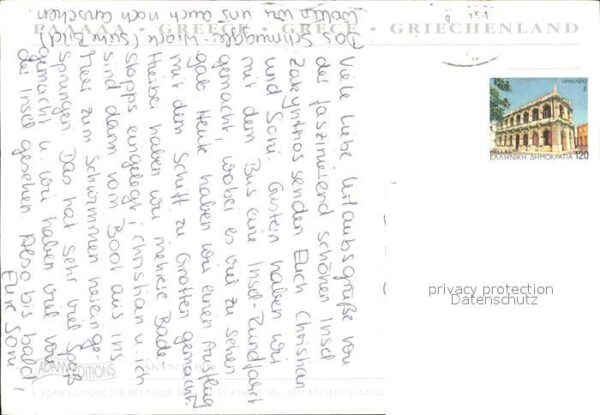 GREECE - GRIECHENLAND
Viele liebe Urlaubsgrüße von
der faszinierend schönen Insel
Zakynthos senden Euch Christian
und Soni. Gestern haben wir
mit dem Bus eine Insel-Rundfahrt
gemacht, wobei es viel zu sehen
gab. Heute haben wir einen Ausflug
mit dem Schiff zu Grotten gemacht.
Hierbei haben wir mehrere Bade-
stopps eingelegt, Christian u. ich
sind dann vom Boot aus ins
Meer zum Schwimmen hineinge-
sprungen. Das hat sehr viel Spaß
gemacht u. wir haben viel von
der Insel gesehen. Also bis bald,
Eure Soni
Das Schmuggler-Wrack (siehe Bild)
wollen wir uns auch noch anschauen.
HELLAS
ΕΛΛΗΝΙΚΗ ΔΗΜΟΚΡΑΤΙΑ 120
ΗΡΑΚΛΕΙΟ
privacy protection
Datenschutz
ADAM EDITIONS
ADAM EDITIONS 275 MESOGION